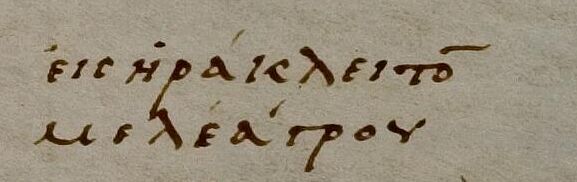 εἰς ἡράκλειτο̄
μελεάγρου